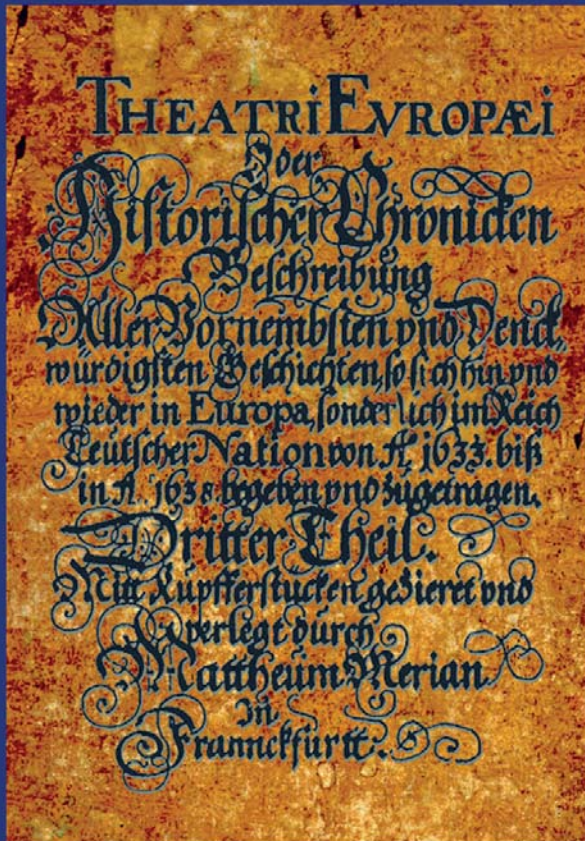 THEATRI EVROPÆI
Oder
Historischer Chronicken
Beschreibung
Aller Vornembsten vnd Denck,
würdigsten Geschichten, so sich hin vnd
wieder in Europa, sonderlich im Reich
Teutscher Nation von Aº 1633. biß
in Aº 1638. begeben vnd zugetragen.
Dritter Theil.
Mitt Kupfferstucken gezieret vnd
verlegt durch
Mattheum Merian
In
Frannckfurtt.